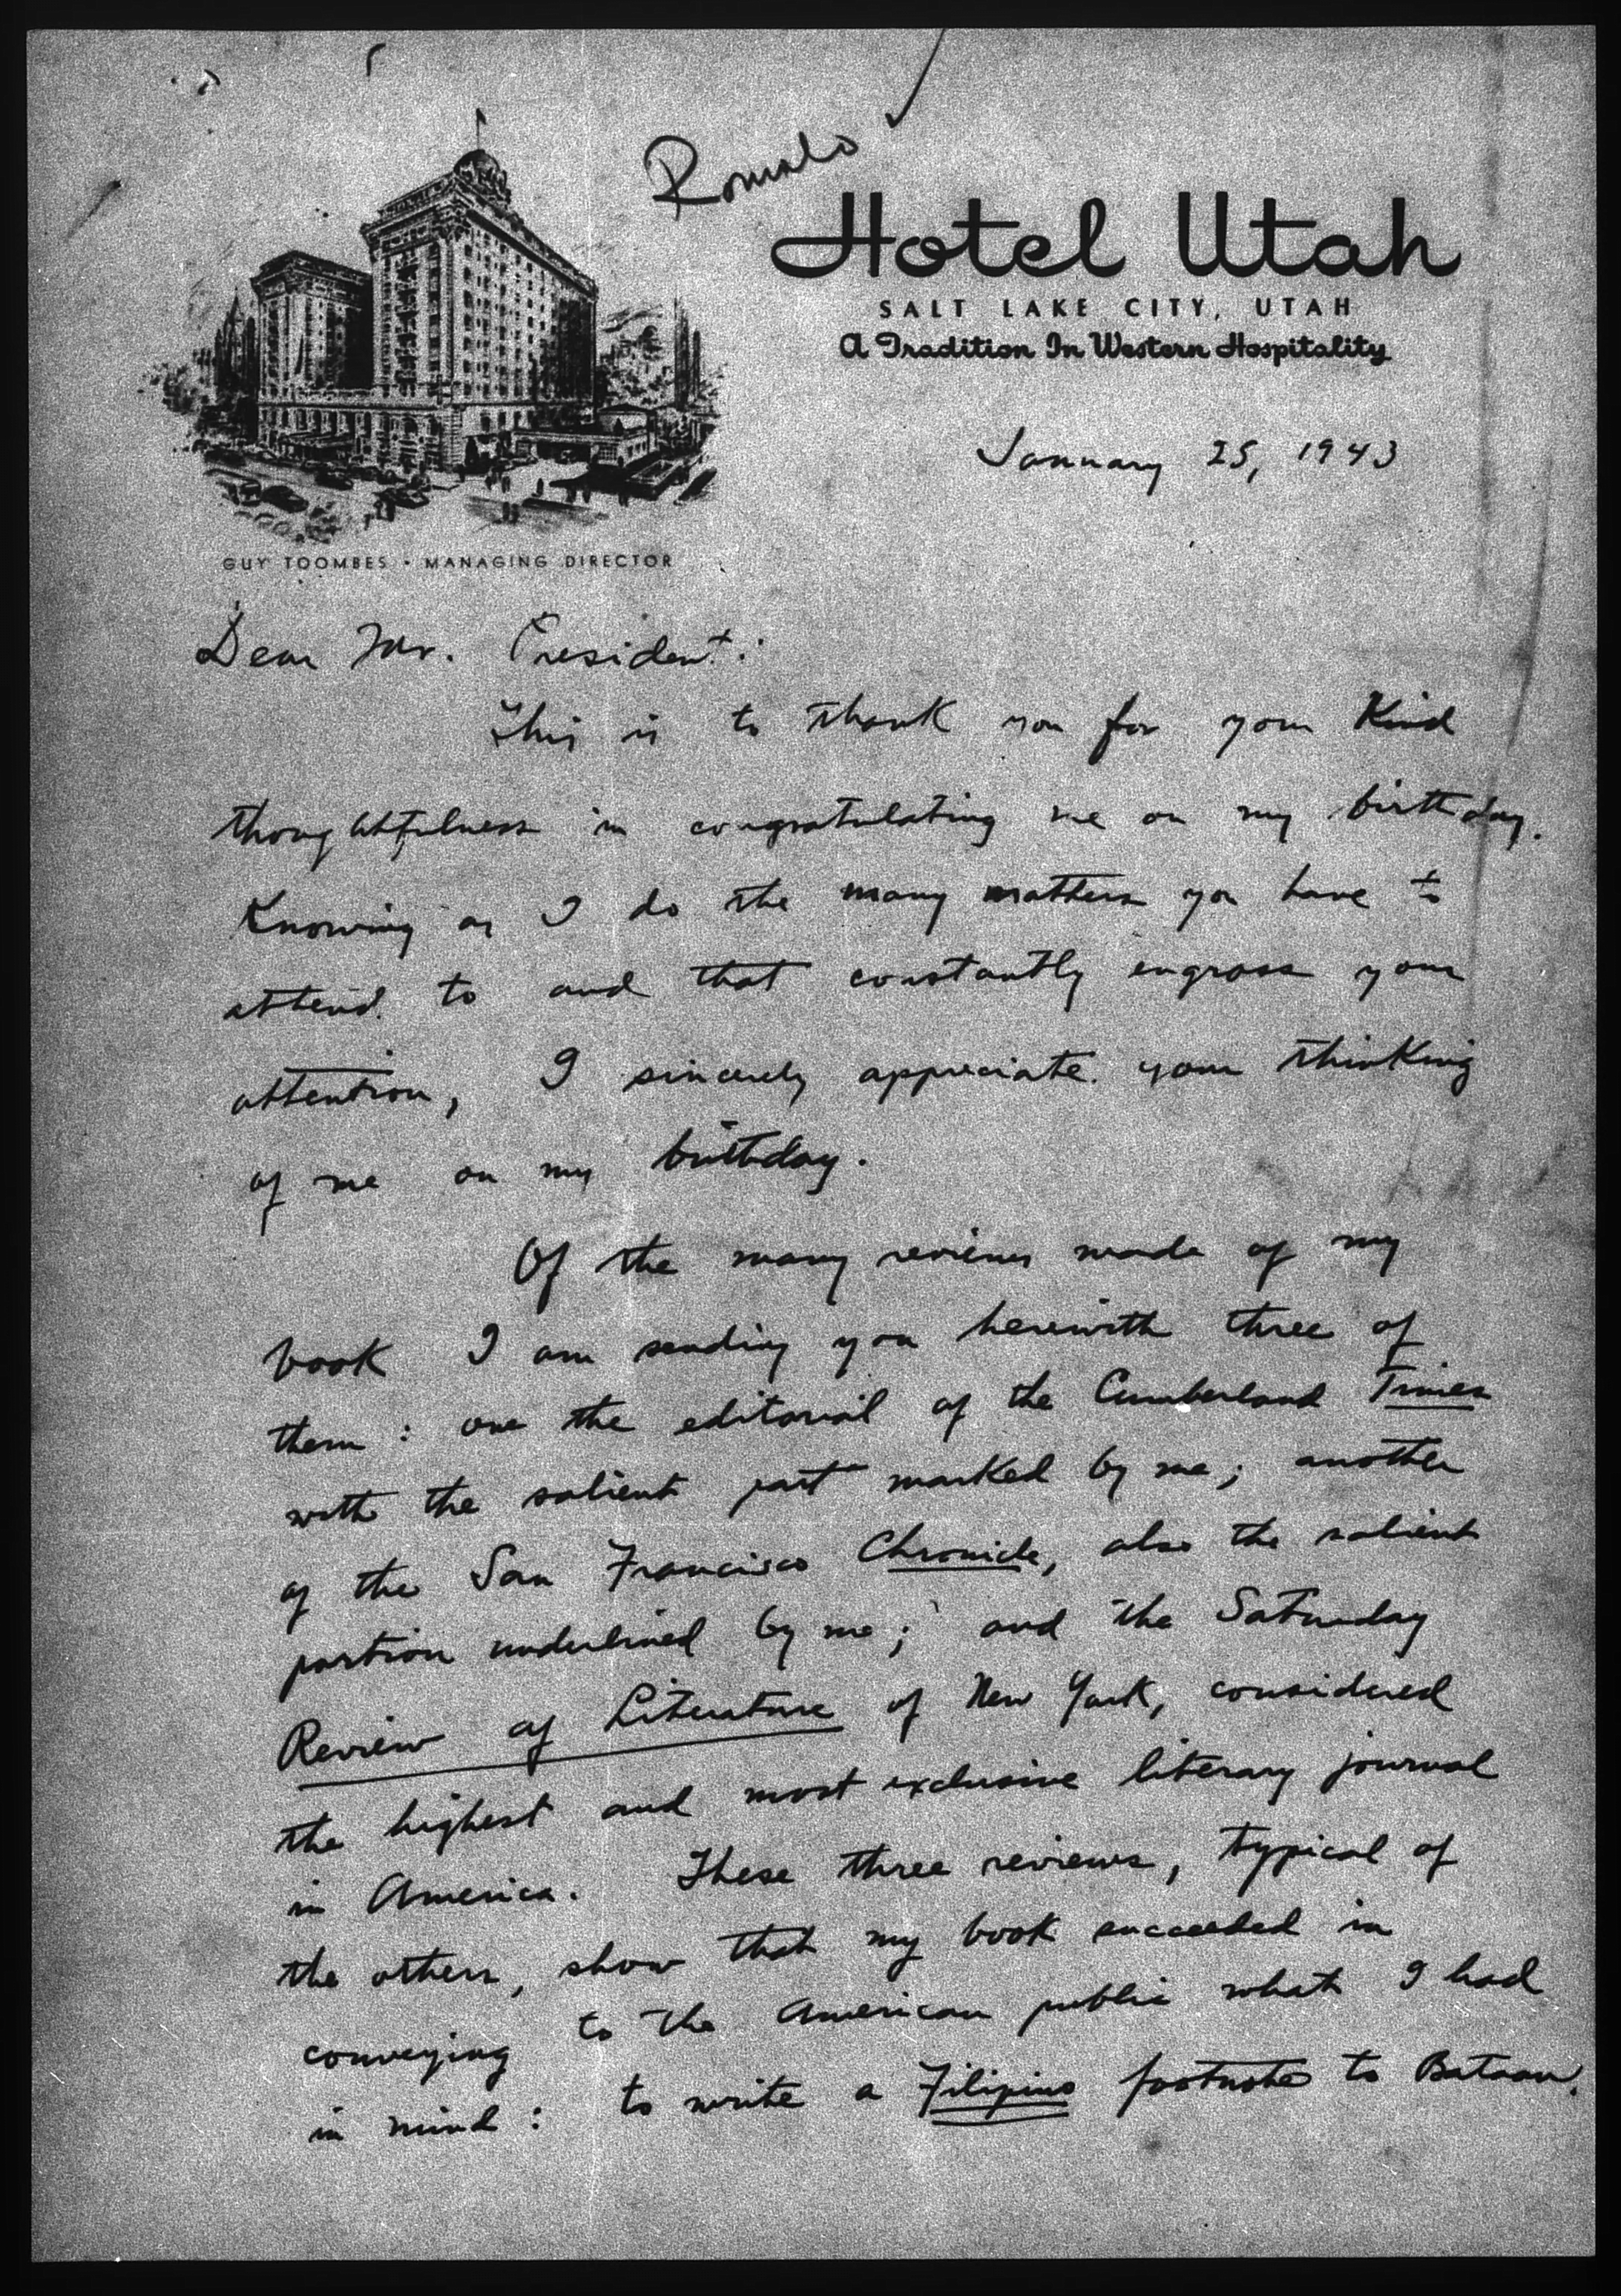 Romulo
Hotel Utah
SALT LAKE CITY, UTAH
A Tradition In Western Hospitality
January 25, 1943
GUY TOOMBES • MANAGING DIRECTOR
Dear Mr. President:
This is to thank you for your kind
thoughtfulness in congratulating me on my birthday.
Knowing as I do the many matters you have to
attend to and that constantly engross your
attention, I sincerely appreciate your thinking
of me on my birthday.
Of the many reviews made of my
book I am sending you herewith three of
them: one the editorial of the Cumberland Times
with the salient part marked by me; another
of the San Francisco Chronicle, also the salient
portion underlined by me; and the Saturday
Review of Literature of New York, considered
the highest and most exclusive literary journal
in America. These three reviews, typical of
the others, show that my book succeeded in
conveying to the American public what I had
in mind: to write a Filipino footnote to Bataan.